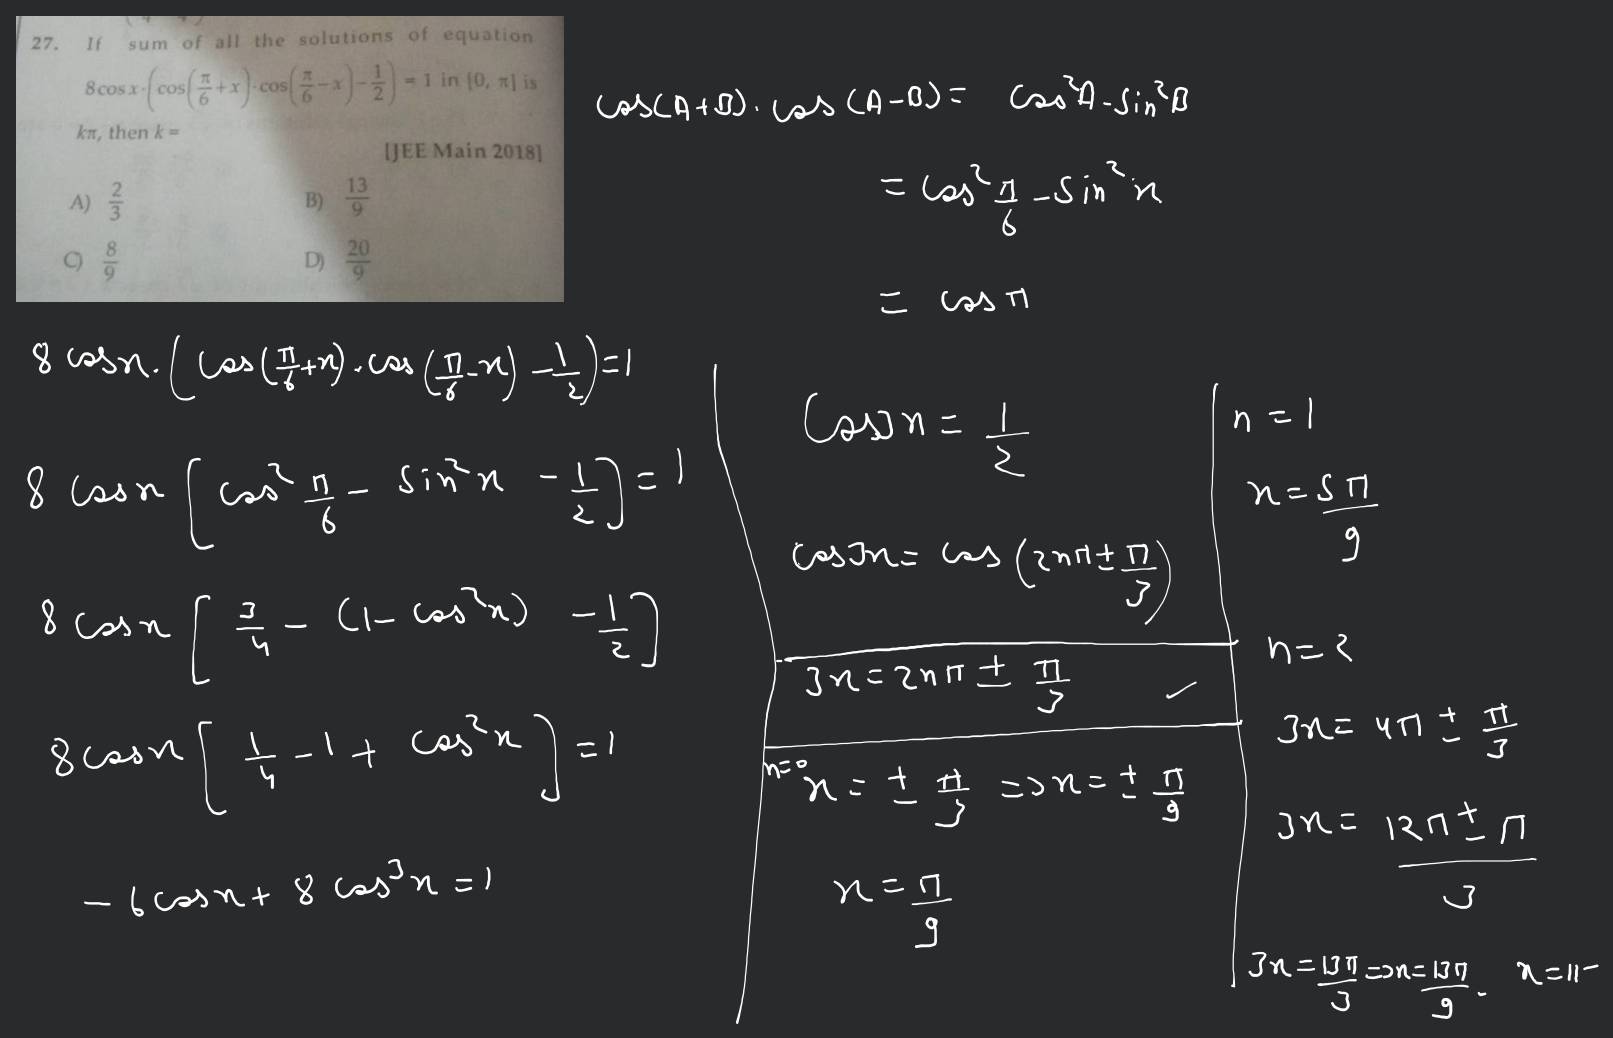 27. If sum of all the solutions of equation
8cosx·(cos(π/6+x)·cos(π/6−x)−1/2) = 1 in [0, π] is
kπ, then k =
[JEE Main 2018]
A) 2/3 B) 13/9
C) 8/9 D) 20/9
cos(A+B). cos (A-B) = cos²A - sin²B
= cos² π/6 - sin²x
= cos π
8 cosx. (cos(π/6+x).cos(π/6-x) -1/2)=1
8 cosx [cos² π/6 - sin²x -1/2] = 1
8 cosx [3/4 - (1-cos²x) -1/2]
8cosx [1/4 -1 + cos²x] = 1
- 6cosx + 8 cos³x = 1
Cos3x = 1/2
cos3x = cos (2nπ ± π/3)
3x = 2nπ ± π/3
n=0 x = ± π/3 => x = ± π/9
x = π/9
n = 1
x = 5π/9
n = 2
3x = 4π ± π/3
3x = 12π ± π/3
3x = 13π/3 => x = 13π/9. x = 11-